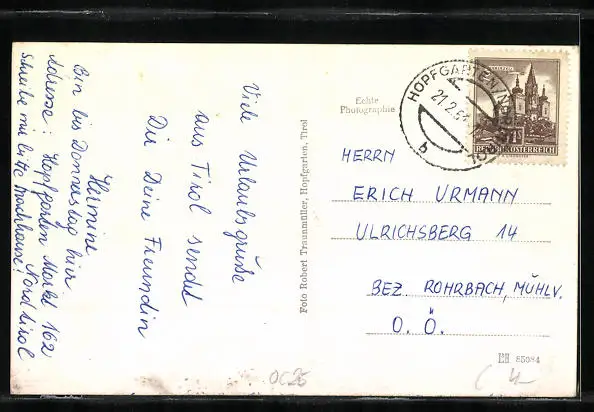 Viele Urlaubsgrüße
aus Tirol sendet
Dir Deine Freundin
Hermine
Bin bis Donnerstag hier
Adresse: Hopfgarten Markt 162
Nordtirol
Schreibe mir bitte nachhause!
Foto Robert Traunmüller, Hopfgarten, Tirol
Echte
Photographie
HOPFGARTEN
21.2.
b
REPUBLIK ÖSTERREICH
HERRN
ERICH URMANN
ULRICHSBERG 14
BEZ ROHRBACH, MÜHLV.
O. Ö.
85984
OC25